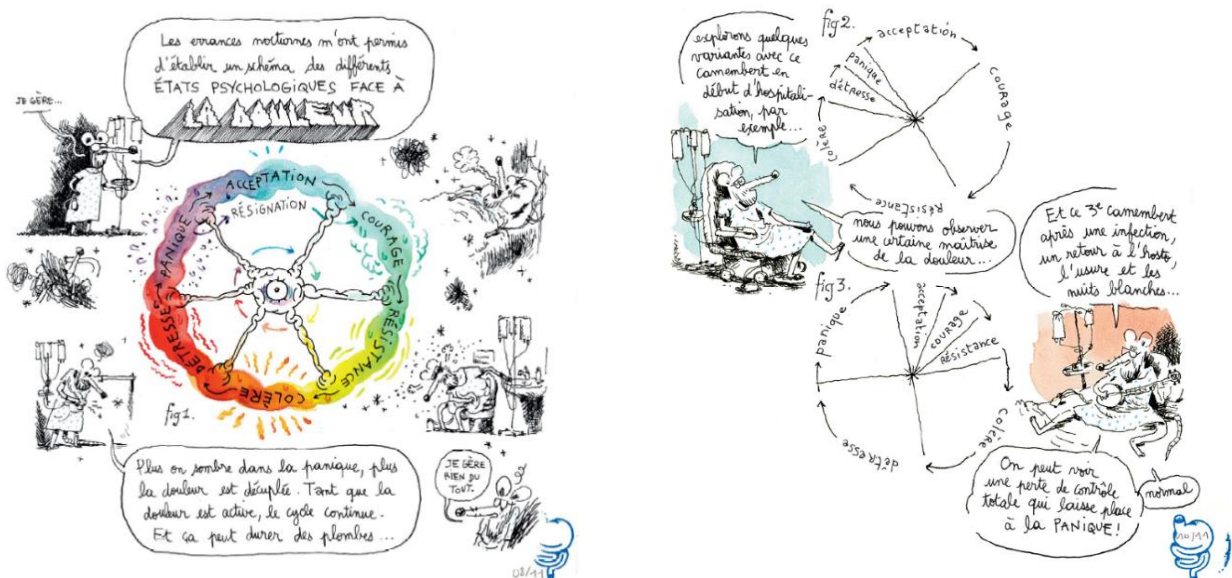 Les errances nocturnes m'ont permis
d'établir un schéma des différents
ÉTATS PSYCHOLOGIQUES FACE À
LA DOULEUR
JE GÈRE...
ACCEPTATION
RÉSIGNATION
COURAGE
RÉSISTANCE
COLÈRE
DÉTRESSE
PANIQUE
fig1.
Plus on sombre dans la panique, plus
la douleur est décuplée. Tant que la
douleur est active, le cycle continue.
Et ça peut durer des plombes...
JE GÈRE
RIEN DU
TOUT.
explorons quelques
variantes avec ce
camembert en
début d'hospitali-
sation, par
exemple...
fig2.
acceptation
courage
résistance
colère
détresse
panique
nous pouvons observer
une certaine maîtrise
de la douleur...
Et ce 3e camembert
après une infection,
un retour à l'hosto,
l'usure et les
nuits blanches...
fig3.
acceptation
courage
résistance
colère
détresse
panique
On peut voir
une perte de contrôle
totale qui laisse place
à la PANIQUE!
normal
10/11